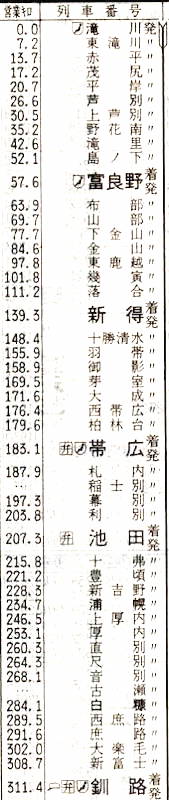 営業キロ 列車番号
0.0 ノ滝川発
7.2 東滝川〃
13.7 赤平〃
17.2 茂尻〃
20.7 平岸〃
26.6 芦別〃
30.5 上芦別〃
35.2 野花南〃
42.6 滝里〃
52.1 島ノ下〃
57.6 ノ富良野着発
63.9 布部〃
69.7 山部〃
77.7 下金山〃
84.6 金山〃
97.8 東鹿越〃
101.8 幾寅〃
111.2 落合〃
139.3 新得着発
148.4 十勝清水〃
155.9 羽帯〃
158.9 御影〃
169.5 芽室〃
171.6 大成〃
176.4 西帯広〃
179.6 柏林台〃
183.1 弁ノ帯広着発
187.9 札内〃
… 稲士別〃
197.3 幕別〃
203.8 利別〃
207.3 弁池田着発
215.8 十弗〃
221.2 豊頃〃
228.3 新吉野〃
234.7 浦幌〃
246.5 上厚内〃
253.1 厚内〃
260.3 直別〃
264.3 尺別〃
268.1 音別〃
… 古瀬〃
284.1 白糠〃
289.5 西庶路〃
291.6 庶路〃
302.0 大楽毛〃
308.7 新富士〃
311.4 弁ノ釧路着発